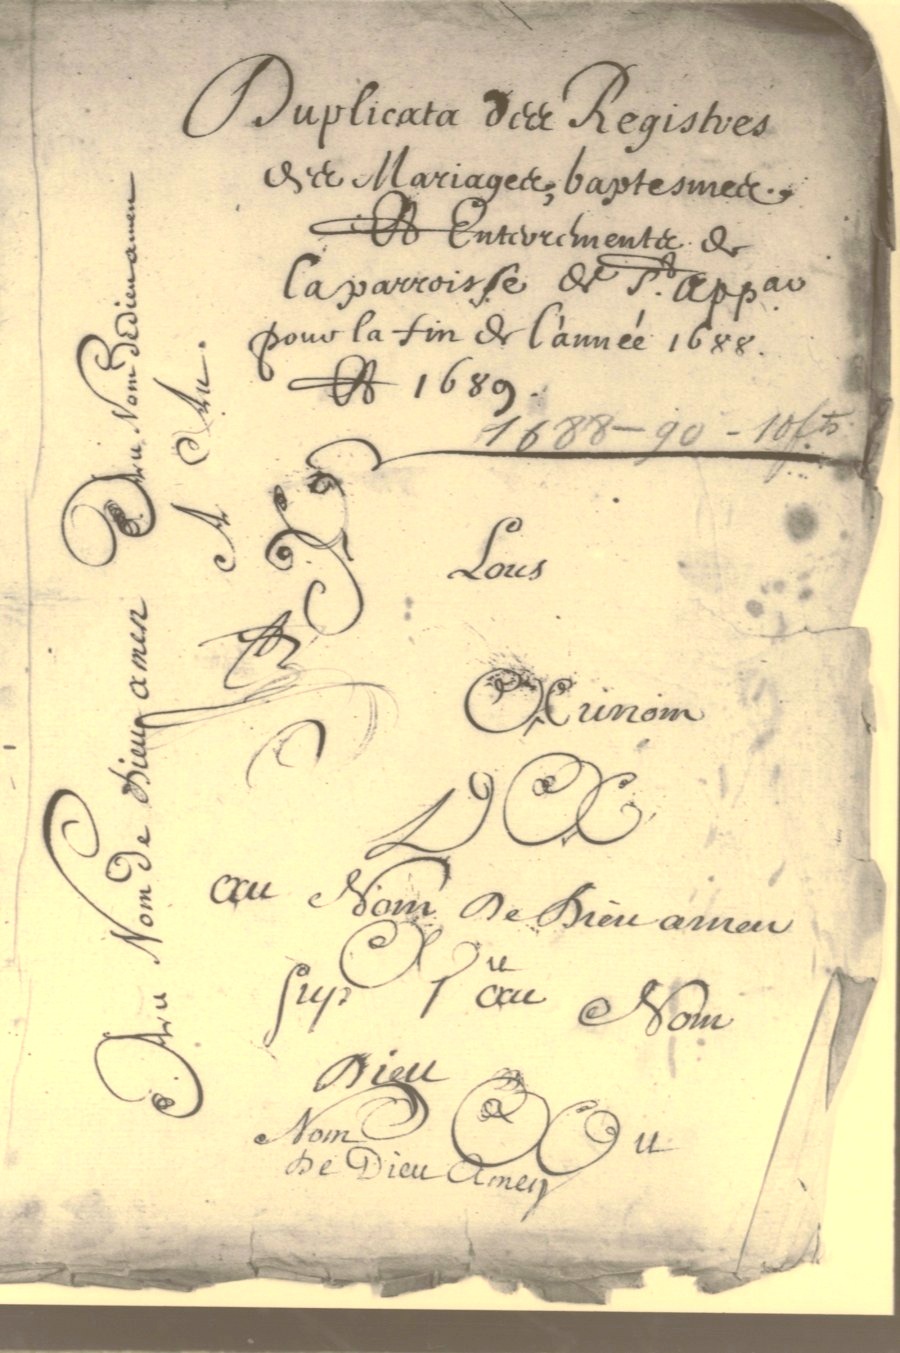 Duplicata des Registres
des Mariages, baptesmes.
Et Enterements de
la parroisse de St. Appau
pour la fin de l'année 1688.
Et 1689.
1688-90 - 10 fts
Lous
au Nom de Dieu amen
sup au Nom
Dieu
Nom
de Dieu Amen
Au Nom de Dieu amen
Au Nom de Dieu amen
A Au.